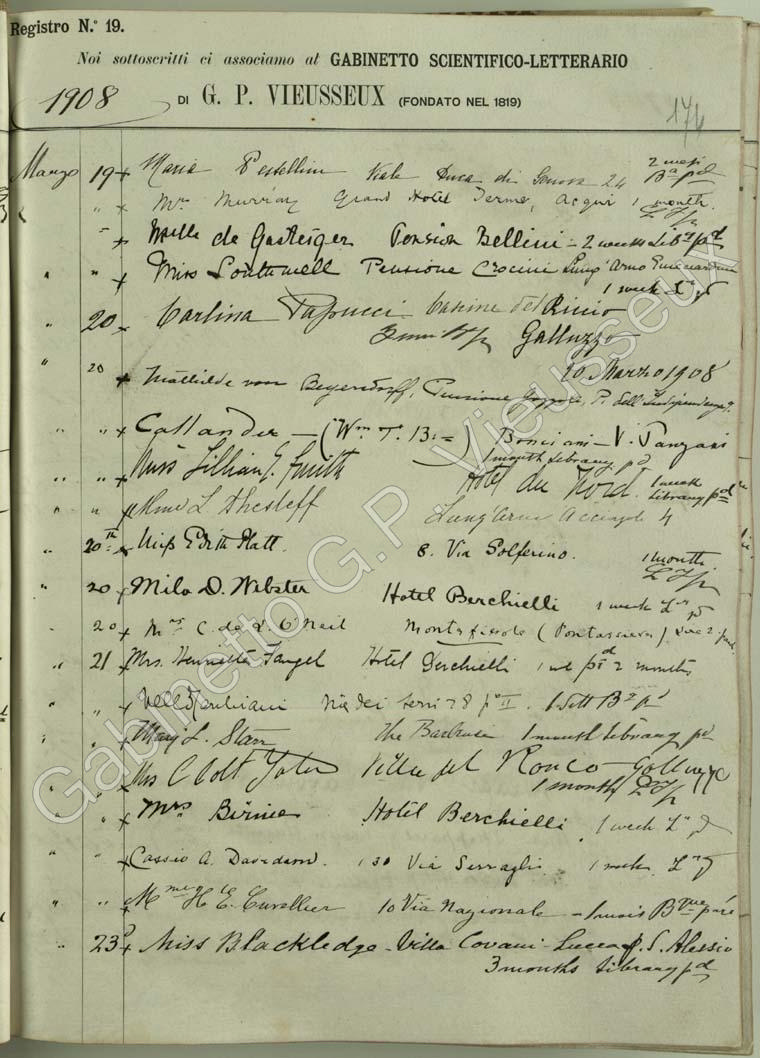 Registro N.º 19.
Noi sottoscritti ci associamo al GABINETTO SCIENTIFICO-LETTERARIO
1908 DI G. P. VIEUSSEUX (FONDATO NEL 1819)
174
Marzo 19 x Maria Pestellini Viale Duca di Genova 24 2 mesi
Bª pd
" x Mrs Murray Grand Hotel Terme, Acqui 1 month
x Melle de Gasteiger Pension Bellini - 2 weeks Lib'y pd
" " x Miss Southwell Pensione Crocini Lung' Arno Guicciardini
1 week
" 20 x Carlina Papucci Cascine del Riccio
Galluzzo
" 20 x Mathilde von 20 Marzo 1908
Pensione P. dell' Indipendenza
" " x Callander - (Wm T. B. =) Bonciani - V. Panzani
1 month Library pd
" " x Miss Lillian E. Smith Hotel du Nord. 1 week
Library pd
" " x Mme L Thesleff Lung'Arno Acciajoli 4
" 20th x Miss Edith Platt. 8. Via Solferino. 1 month
" 20 x Milo D. Webster Hotel Berchielli 1 week
- 20 x Mrs C. de L. O'Neil Montefiesole (Pontassieve)
" 21 x Mrs. Henrietta Fangel Hotel Berchielli pd 2 months
" " x Via dei Servi 28 pº II. 1 Sett Bª pº
" " x Mary L. Starr The Barbacia 1 month Library pd
" " x Mrs C Colt Yates Villa del Ronco - Galluzzo
1 month
" " x Mrs Birnie Hotel Berchielli 1 week
" " x Cassio A. Davidson. 130 Via Serraglio 1 month
" " x Mme H. E. Cuvellier 10 Via Nazionale - 1 mois Bque payé
" 23 x Miss Blackledge - Villa Covani - Lucca S. Alessio
3 months Library pd
Gabinetto G.P. Vieusseux